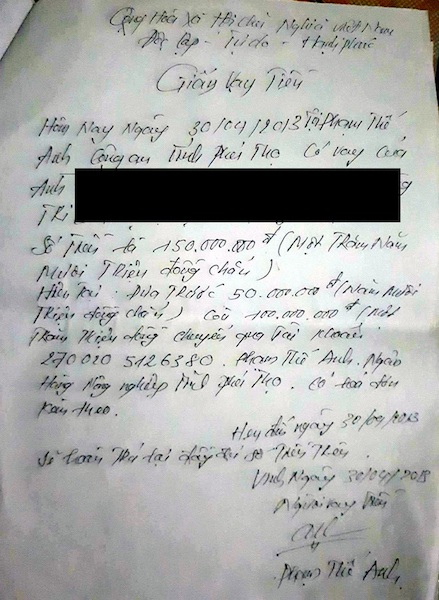 Cộng Hoà Xã Hội Chủ Nghĩa Việt Nam
Độc Lập - Tự do - Hạnh phúc
Giấy Vay Tiền
Hôm Nay Ngày 30/04/2013 Tôi Phạm Thế
Anh Công an Tỉnh Phú Thọ Có vay của
Anh
Thị
Số Tiền là 150.000.000đ (Một Trăm Năm
Mươi Triệu đồng chẵn)
Hiện Tại: Đưa Trước 50.000.000đ (Năm Mươi
Triệu đồng chẵn) Còn 100.000.000đ (Một
Trăm Triệu đồng chuyển qua Tài Khoản
2700205126380. Phạm Thế Anh. Ngân
Hàng Nông nghiệp Tỉnh Phú Thọ. Có hoá đơn
Kèm theo.
Hẹn đến ngày 30/09/2013
Sẽ hoàn Trả lại đầy đủ số Tiền Trên.
Vinh Ngày 30/04/2013
Người vay Tiền
Phạm Thế Anh